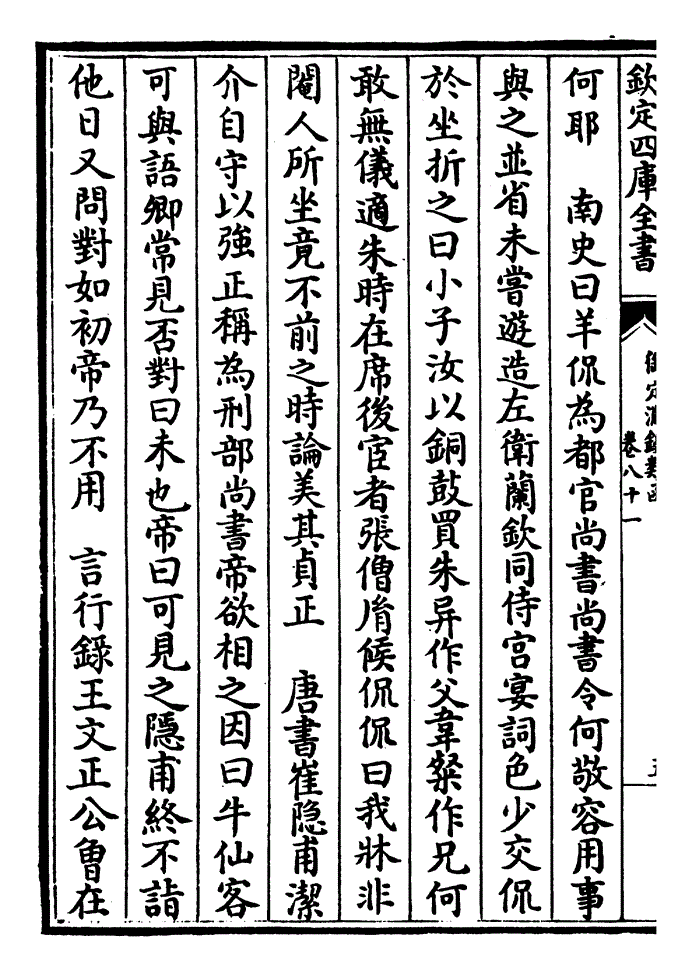 欽定四庫全書
御定淵鑑類函
卷八十一
何耶　南史曰羊侃為都官尚書尚書令何敬容用事
與之並省未嘗遊造左衛蘭欽同侍宮宴詞色少交侃
於坐折之曰小子汝以銅鼓買朱异作父韋粲作兄何
敢無儀適朱時在席後宦者張僧胤候侃侃曰我牀非
閹人所坐竟不前之時論美其貞正　唐書崔隐甫潔
介自守以強正稱為刑部尚書帝欲相之因曰牛仙客
可與語卿常見否對曰未也帝曰可見之隱甫終不詣
他日又問對如初帝乃不用　言行錄王文正公曾在